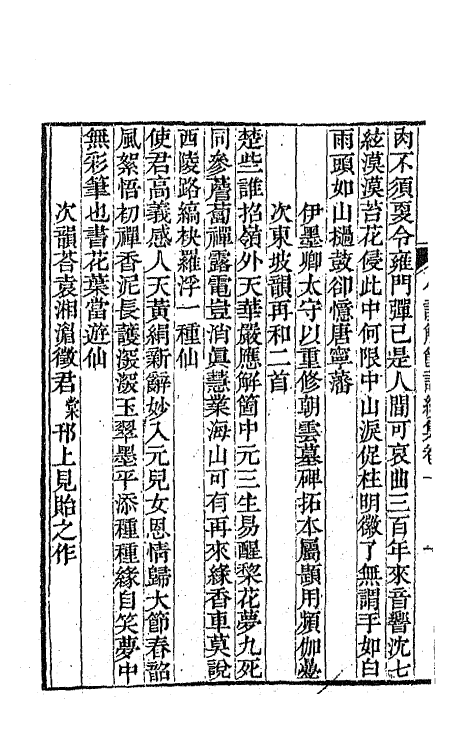 肉不須戛令雍門彈已是人間可哀曲三百年來音響沈七
絃漠漠苔花侵此中何限中山淚促柱明徽了無謂手如白
雨頭如山撾鼓卻憶唐寧藩
伊墨卿太守以重修朝雲墓碑拓本屬題用頻伽
次東坡韻再和二首
楚些誰招嶺外天華嚴應解箇中元三生易醒棃花夢九死
同參薝蔔禪露電豈消眞慧業海山可有再來緣香車莫說
西陵路縞袂羅浮一種仙
使君高義感人天黃絹新辭妙入元兒女恩情歸大節春韶
風絮悟初禪香泥長護深深玉翠墨平添種種緣自笑夢中
無彩筆也書花葉當遊仙
次韻荅袁湘湄徵君棠邗上見貽之作